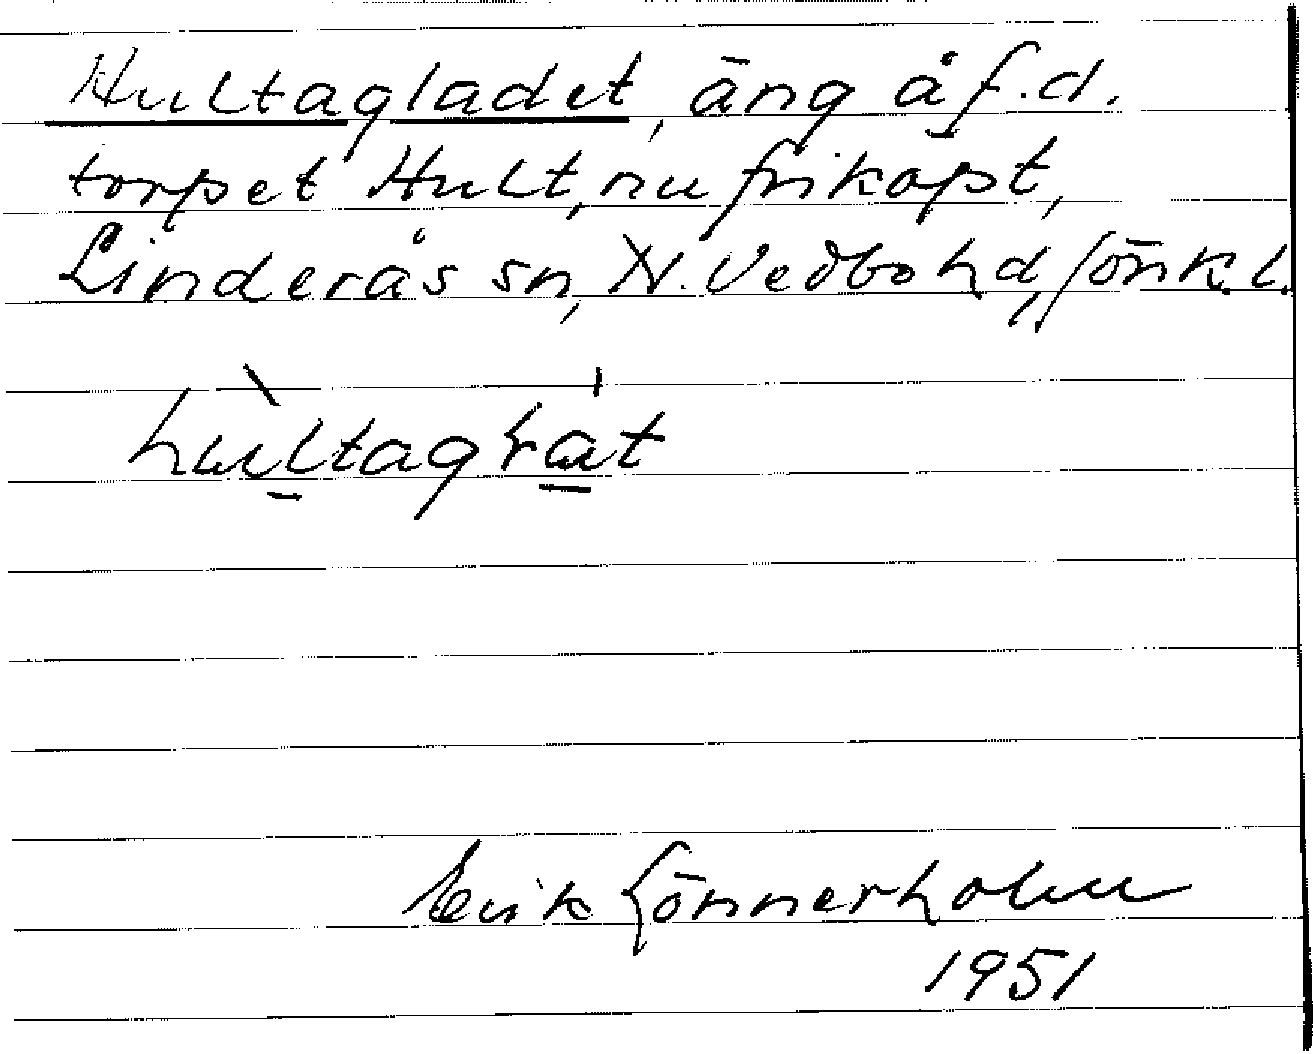 Hultagladet, äng å f.d.
torpet Hult, nu friköpt,
Linderås sn, N. Vedbo hd, Jönk. l.
Erik Lönnerholm
1951